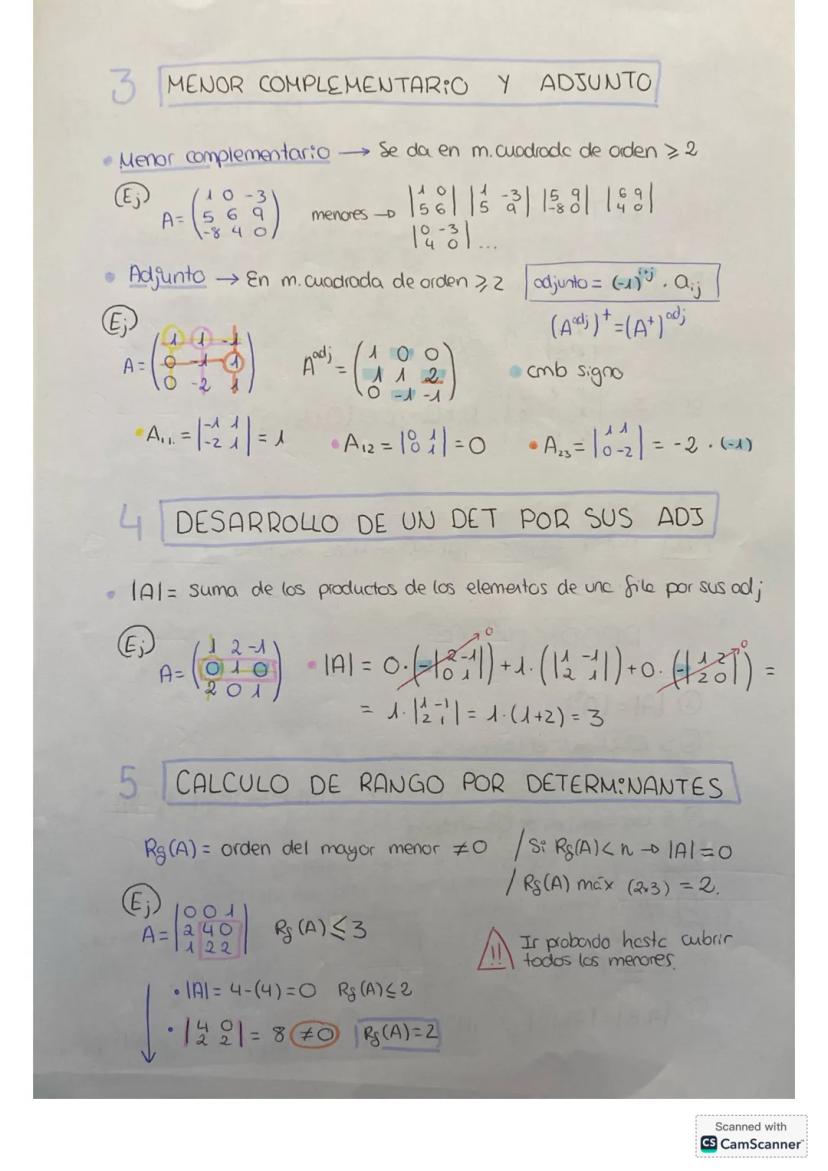 3 MENOR COMPLEMENTARIO Y ADJUNTO
• Menor complementario → Se da en m.cuadrada de orden ≥ 2
Ej) A = (1 0 -3 / 5 6 9 / -8 4 0) menores → |1 0 / 5 6| |1 -3 / 5 9| |5 9 / -8 0| |6 9 / 4 0|
|0 -3 / 4 0| ...
• Adjunto → En m.cuadrada de orden ≥ 2 adjunto = (-1)^{i+j} · a_{ij}
Ej) (A^{adj})^t = (A^t)^{adj}
A = (1 1 -1 / 0 -1 1 / 0 -2 1) A^{adj} = (1 0 0 / 1 1 2 / 0 -1 -1) • cmb signo
• A₁₁ = |-1 1 / -2 1| = 1 • A₁₂ = |0 1 / 0 1| = 0 • A₂₃ = |1 1 / 0 -2| = -2 · (-1)
4 DESARROLLO DE UN DET POR SUS ADJ
• |A| = suma de los productos de los elementos de una fila por sus adj
Ej) A = (1 2 -1 / 0 1 0 / 2 0 1) • |A| = 0·(-|2 -1 / 0 1|) + 1·(|1 -1 / 2 1|) + 0·(-|1 2 / 2 0|) =
= 1·|1 -1 / 2 1| = 1·(1+2) = 3
5 CALCULO DE RANGO POR DETERMINANTES
Rg(A) = orden del mayor menor ≠ 0 / Si Rg(A) < n → |A| = 0
/ Rg(A) máx (2·3) = 2.
Ej) A = |0 0 1 / 2 4 0 / 1 2 2| Rg(A) ≤ 3
!! Ir probando hasta cubrir
todos los menores.
• |A| = 4-(4) = 0 Rg(A) ≤ 2
• |4 0 / 2 2| = 8 ≠ 0 Rg(A) = 2
Scanned with
CS CamScanner